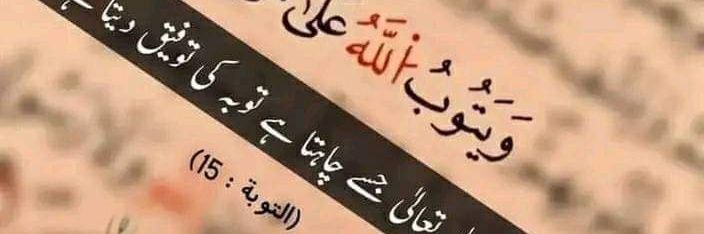 وَيَتُوبُ ٱللَّهُ عَلَىٰ
تعالیٰ جسے چاہتا ہے توبہ کی توفیق دیتا ہے
(التوبة : 15)